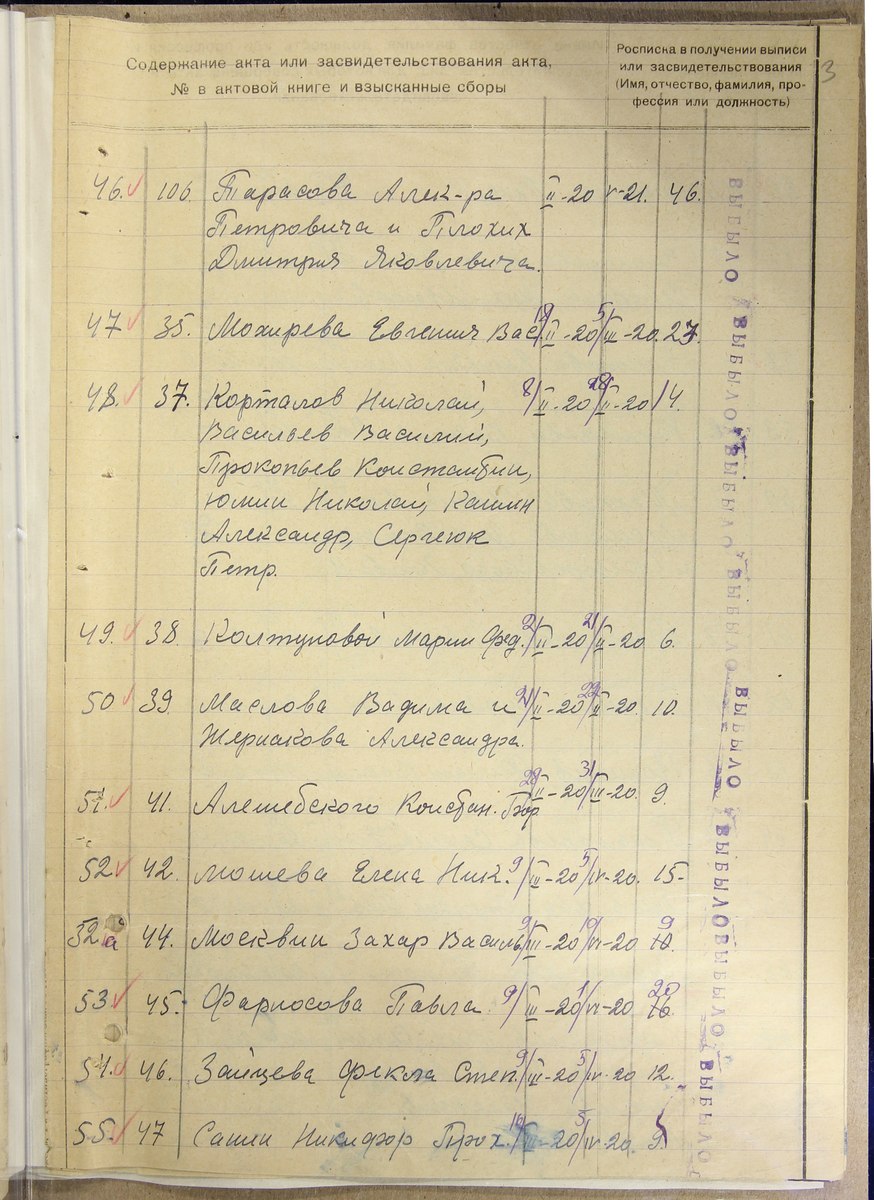 Содержание акта или засвидетельствования акта,
№ в актовой книге и взысканные сборы
Росписка в получении выписи
или засвидетельствования
(Имя, отчество, фамилия, про-
фессия или должность)
3
46. 106 Тарасова Алек-ра II-20 V-21. 46.
Петровича и Плохих
Дмитрия Яковлевича.
47 35. Мохирева Евгения Вас. II-20 5/III-20. 27.
48. 37. Корталов Николай, 8/II-20 28/II-20 14.
Васильев Василий,
Прокопьев Константин,
Юмин Николай, Кашин
Александр, Сергеюк
Петр.
49. 38. Колтуновой Марии Фед. 21/II-20 21/II-20 6.
50 39. Маслова Вадима и 21/II-20 22/II-20. 10.
Жернакова Александра.
51. 41. Алешебского Констан. Бор 28/II-20 31/III-20. 9.
52 42. Мошева Елена Ник. 9/III-20 5/IV-20. 15-
52а 44. Москвин Захар Василь 9/III-20 10/VI-20 9
53 45. Фарносова Павла 9/III-20 1/VI-20 20
54. 46. Зайцева Фекла Степ. 9/III-20 5/IV-20 12.
55. 47 Санин Никифор Прох. 10/III-20 5/IV-20. 9.
ВЫБЫЛО ВЫБЫЛО ВЫБЫЛО ВЫБЫЛО ВЫБЫЛО ВЫБЫЛО ВЫБЫЛО ВЫБЫЛО